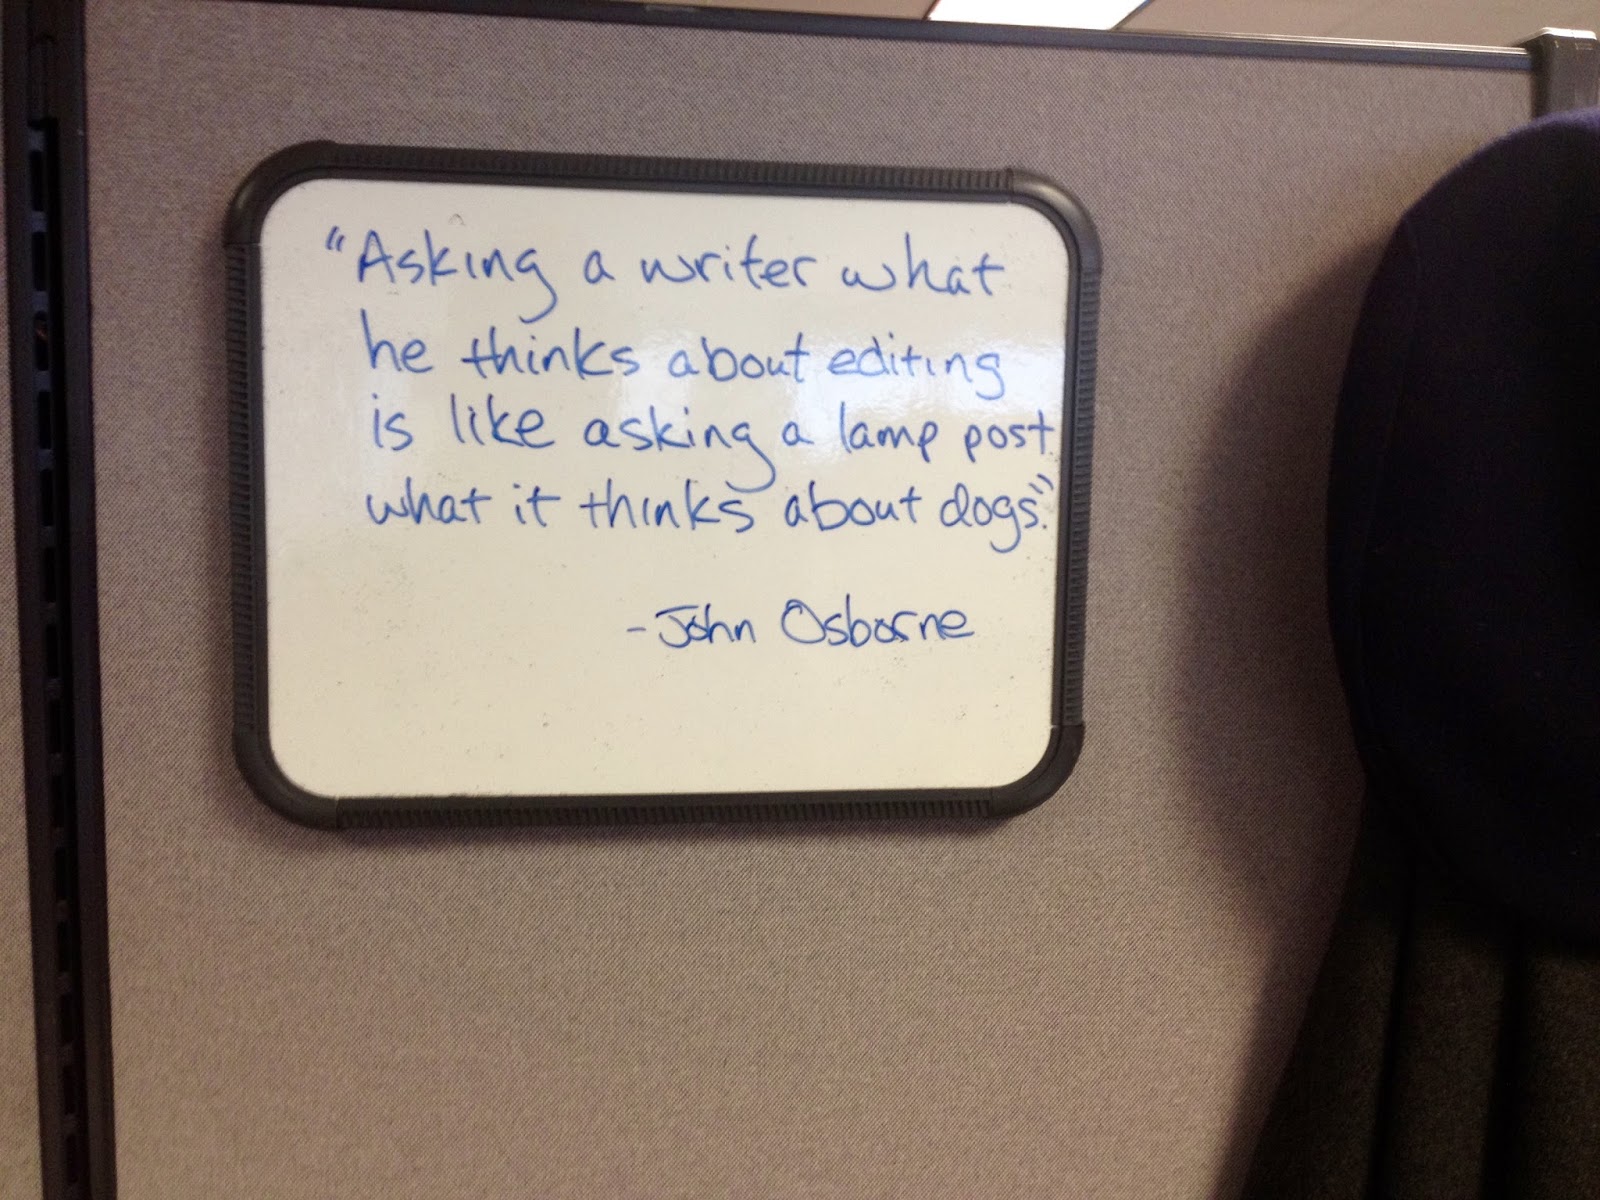 "Asking a writer what
he thinks about editing
is like asking a lamp post
what it thinks about dogs."
-John Osborne